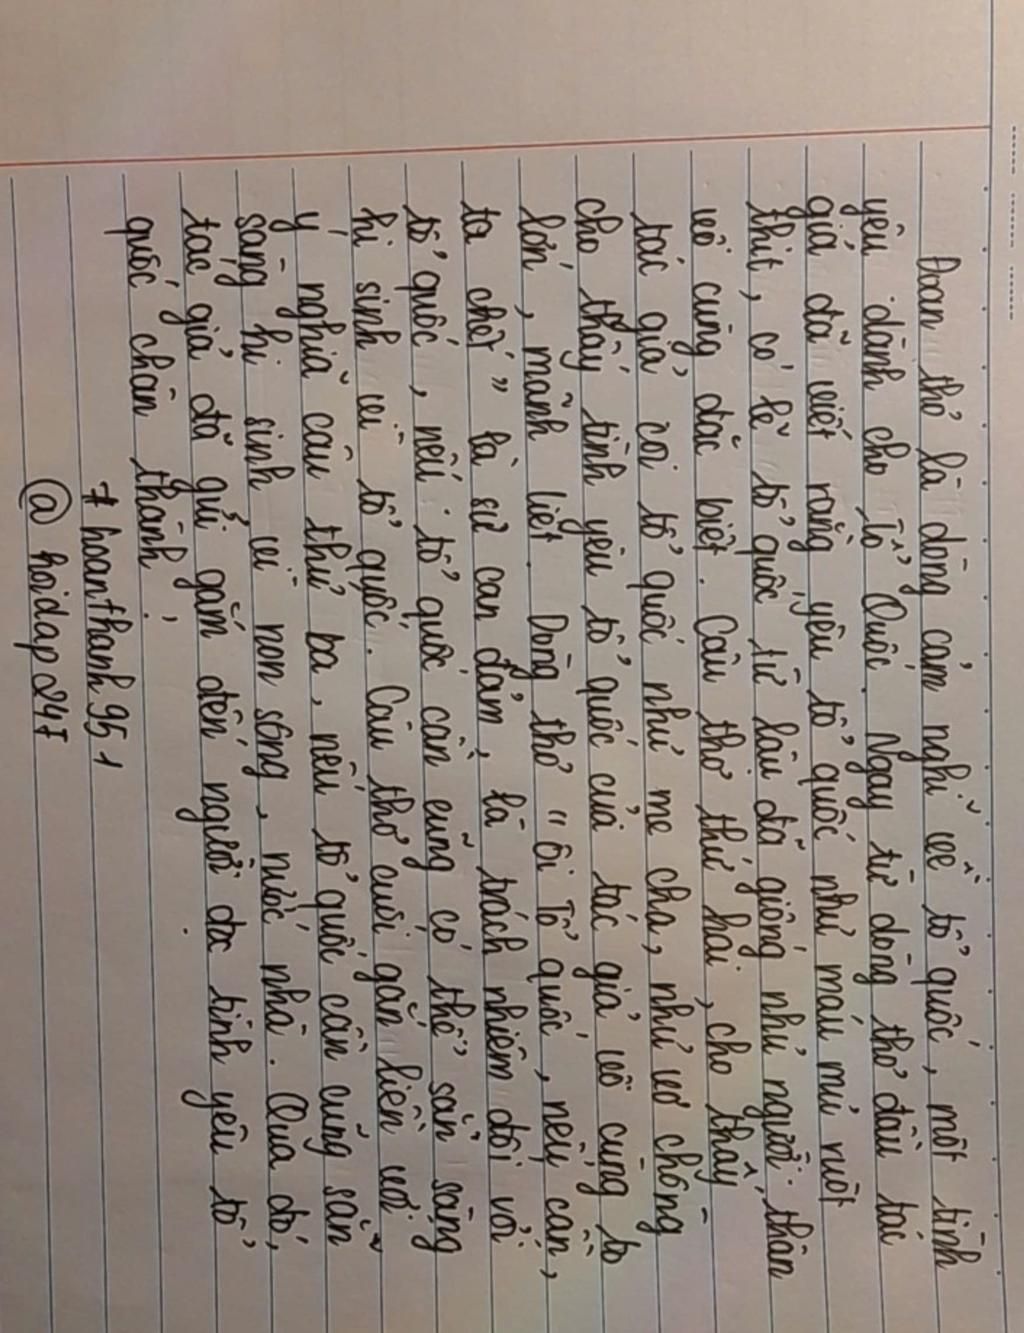 Đoạn thơ là dòng cảm nghĩ về tổ quốc, một tình
yêu dành cho Tổ Quốc. Ngay từ dòng thơ đầu tác
giả đã viết rằng yêu tổ quốc như máu mủ ruột
thịt, có lẽ tổ quốc từ lâu đã giống như người thân
vô cùng đặc biệt. Câu thơ thứ hai, cho thấy
tác giả coi tổ quốc như mẹ cha, như vợ chồng
cho thấy tình yêu tổ quốc của tác giả vô cùng to
lớn, mãnh liệt. Dòng thơ "ôi Tổ quốc, nếu cần,
ta chết" là sự can đảm, là trách nhiệm đối với
tổ quốc, nếu tổ quốc cần cũng có thể sẵn sàng
hi sinh vì tổ quốc. Câu thơ cuối gắn liền với
ý nghĩa câu thứ ba, nếu tổ quốc cần cũng sẵn
sàng hi sinh vì non sông, nước nhà. Qua đó,
tác giả đã gửi gắm đến người đọc tình yêu tổ
quốc chân thành.
#hoanthanh951
@hoidap247